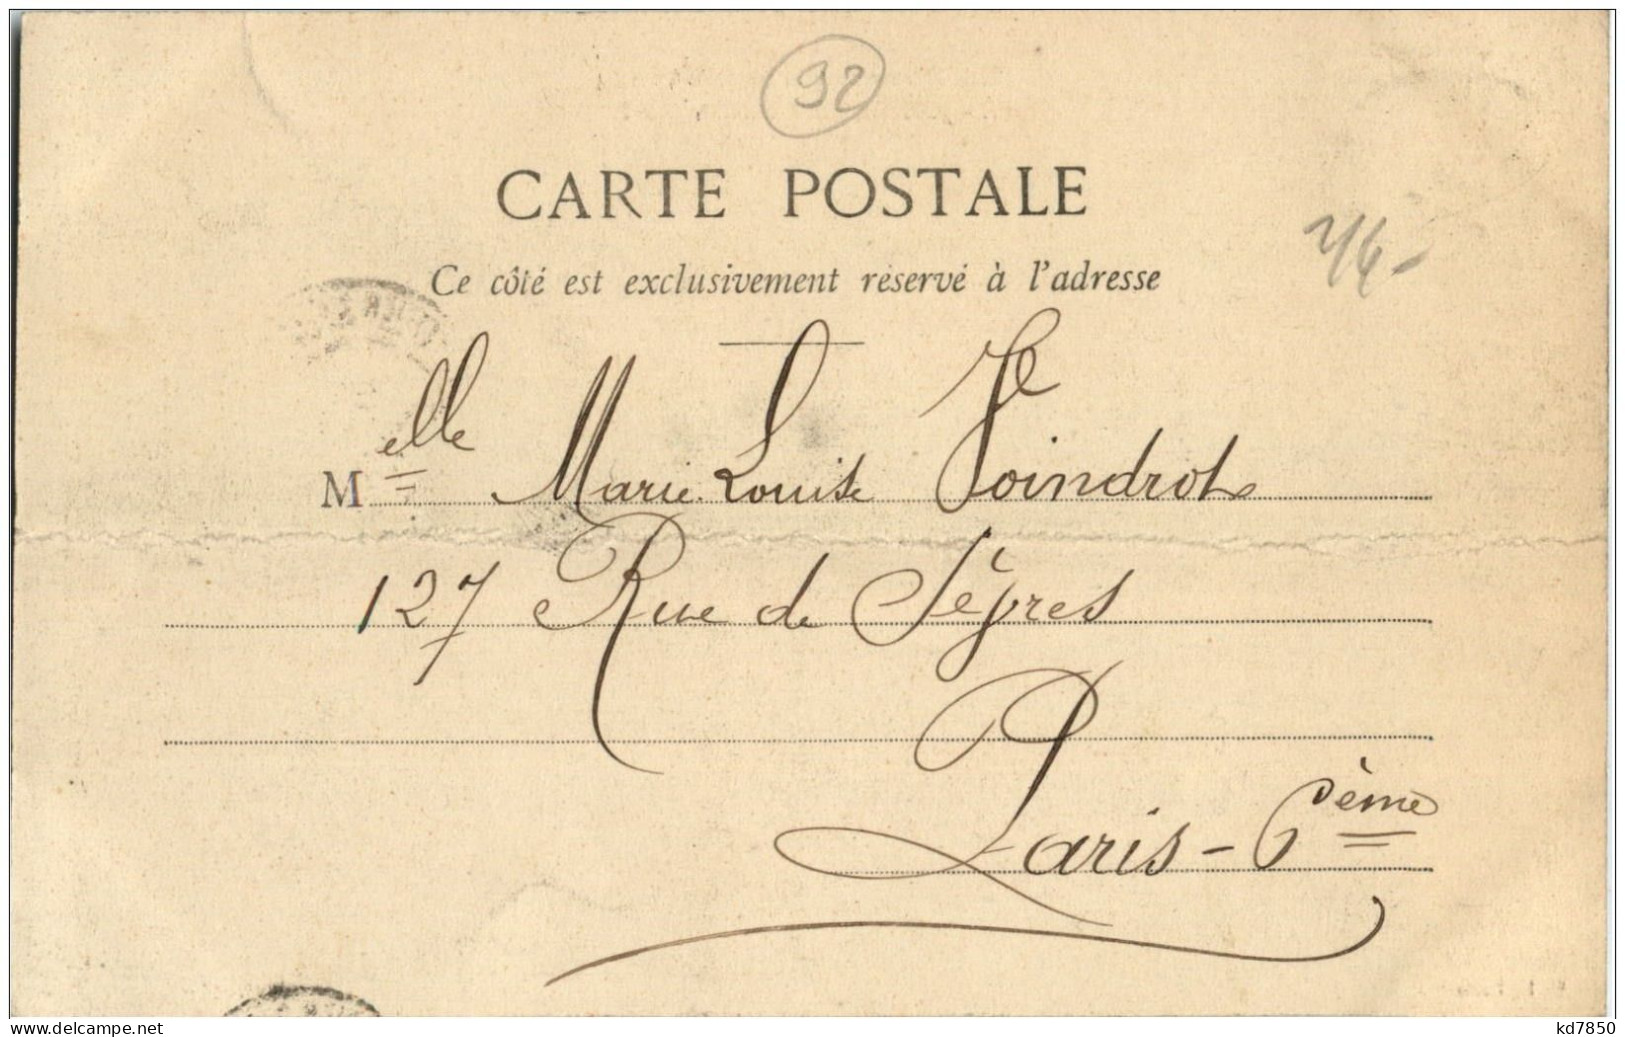 92
CARTE POSTALE
Ce côté est exclusivement réservé à l'adresse
Melle Marie Louise Poindrot
127 Rue de Sèvres
Paris - 6ème
www.delcampe.net
kd7850